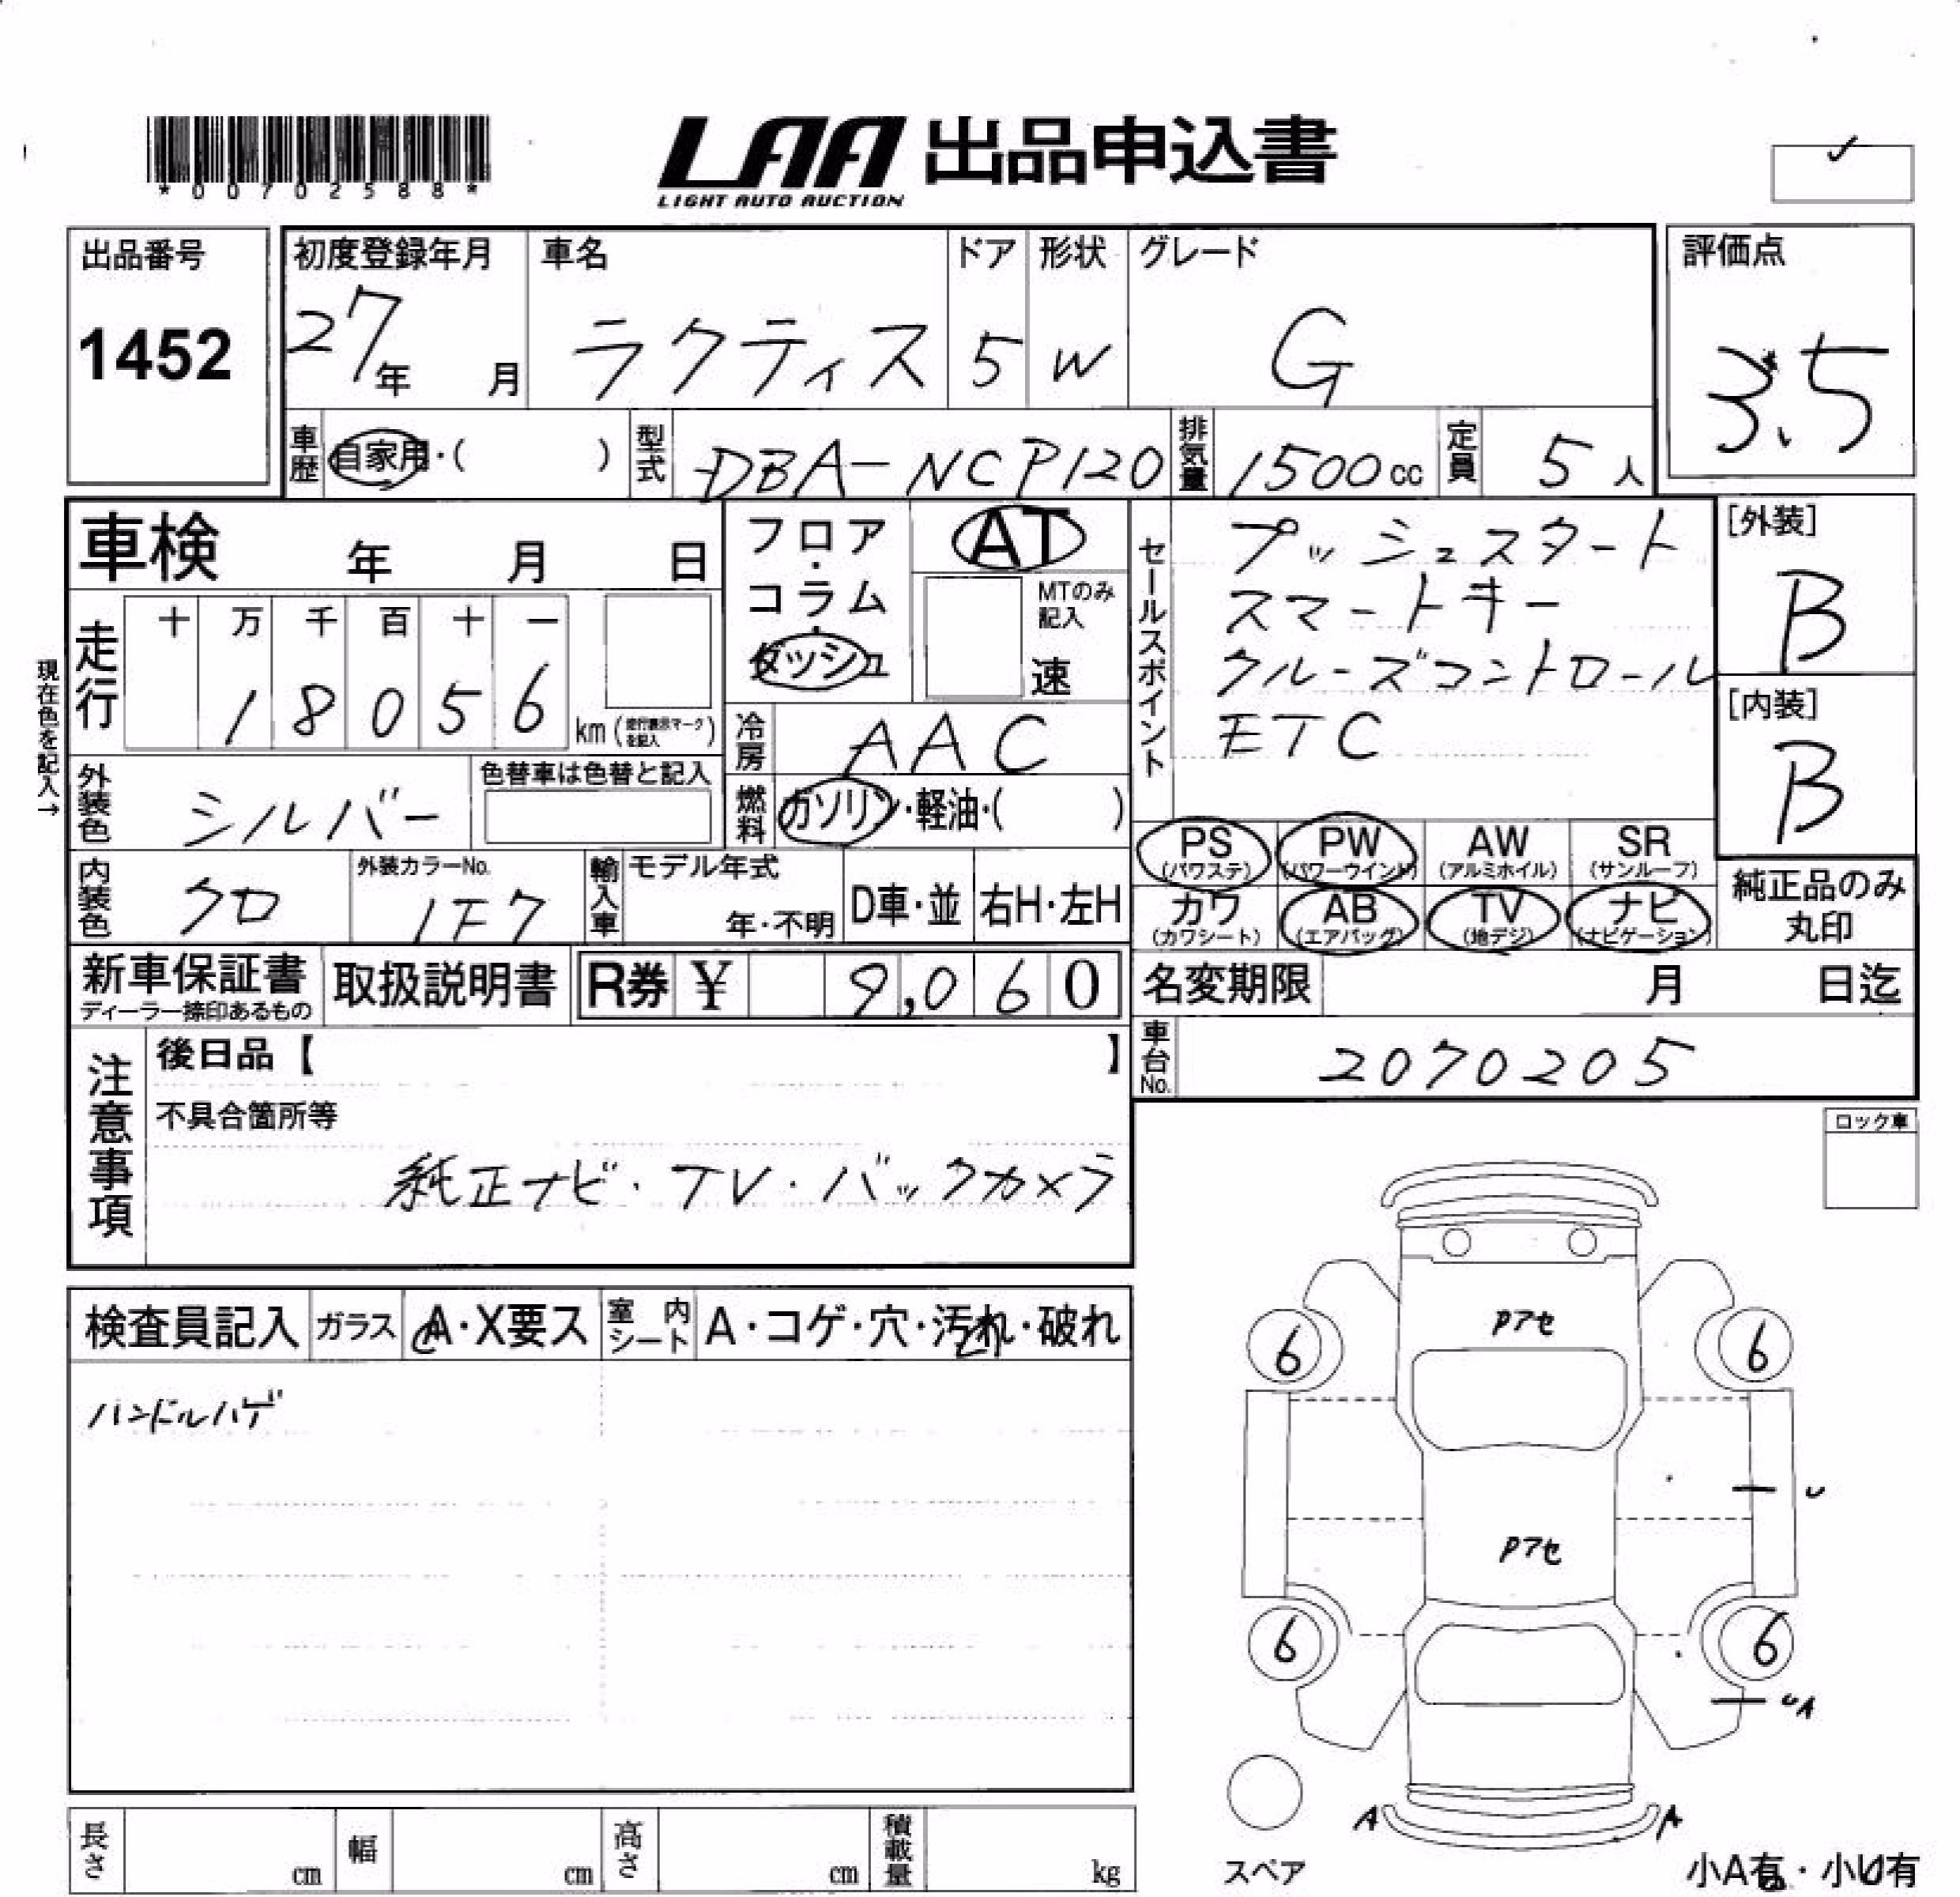 *00702588*
LAA 出品申込書
LIGHT AUTO AUCTION
出品番号
1452
初度登録年月
27年 月
車名
ラクティス
ドア
5
形状
W
グレード
G
評価点
3.5
車歴 自家用・( )
型式 DBA-NCP120
排気量 1500cc
定員 5人
車検 年 月 日
フロア・コラム・ダッシュ
AT
MTのみ記入
速
セールスポイント
プッシュスタート
スマートキー
クルーズコントロール
ETC
[外装]
B
[内装]
B
現在色を記入→
走行
十 万 千 百 十 一
1 8 0 5 6
km (走行表示マークを記入)
冷房 AAC
外装色 シルバー
色替車は色替と記入
燃料 ガソリン・軽油・( )
PS (パワステ)
PW (パワーウインド)
AW (アルミホイル)
SR (サンルーフ)
カワ (カワシート)
AB (エアバッグ)
TV (地デジ)
ナビ (ナビゲーション)
純正品のみ
丸印
内装色 クロ
外装カラーNo.
1F7
輸入車
モデル年式
年・不明
D車・並
右H・左H
新車保証書
ディーラー捺印あるもの
取扱説明書
R券 ¥ 9,060
名変期限 月 日迄
車台No. 2070205
注意事項
後日品【 】
不具合箇所等
純正ナビ・TV・バックカメラ
ロック車
検査員記入
ガラス A・X要ス
室内シート A・コゲ・穴・汚れ・破れ
ハンドルハゲ
Pアセ
6
6
U
Pアセ
6
6
UA
A
A
スペア
小A有・小U有
長さ cm
幅 cm
高さ cm
積載量 kg